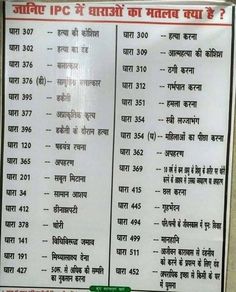 जानिए IPC में धाराओं का मतलब क्या है ?
धारा 307 -- हत्या की कोशिश
धारा 302 -- हत्या का दंड
धारा 376 -- बलात्कार
धारा 376 (डी)-- सामूहिक बलात्कार
धारा 395 -- डकैती
धारा 377 -- अप्राकृतिक कृत्य
धारा 396 -- डकैती के दौरान हत्या
धारा 120 -- षडयंत्र रचना
धारा 365 -- अपहरण
धारा 201 -- सबूत मिटाना
धारा 34 -- सामान आशय
धारा 412 -- छीनाझपटी
धारा 378 -- चोरी
धारा 141 -- विधिविरूद्ध जमाव
धारा 191 -- मिथ्यासाक्ष्य देना
धारा 427 -- 50रू. से अधिक की सम्पति
का नुकसान करना
धारा 300 -- हत्या करना
धारा 309 -- आत्महत्या की कोशिश
धारा 310 -- ठगी करना
धारा 312 -- गर्भपात करना
धारा 351 -- हमला करना
धारा 354 -- स्त्री लज्जाभंग
धारा 354 (घ) -- महिलाओं का पीछा करना
धारा 362 -- अपहरण
धारा 369
धारा 415 -- छल करना
धारा 445 -- गृहभेदन
धारा 494 -- पति/पत्नी के जीवनकाल में पुनः विवाह
धारा 499 -- मानहानि
धारा 511 -- आजीवन कारावास से दंडनीय
को करने के प्रयत्न के लिए दंड
धारा 452
में घुसना